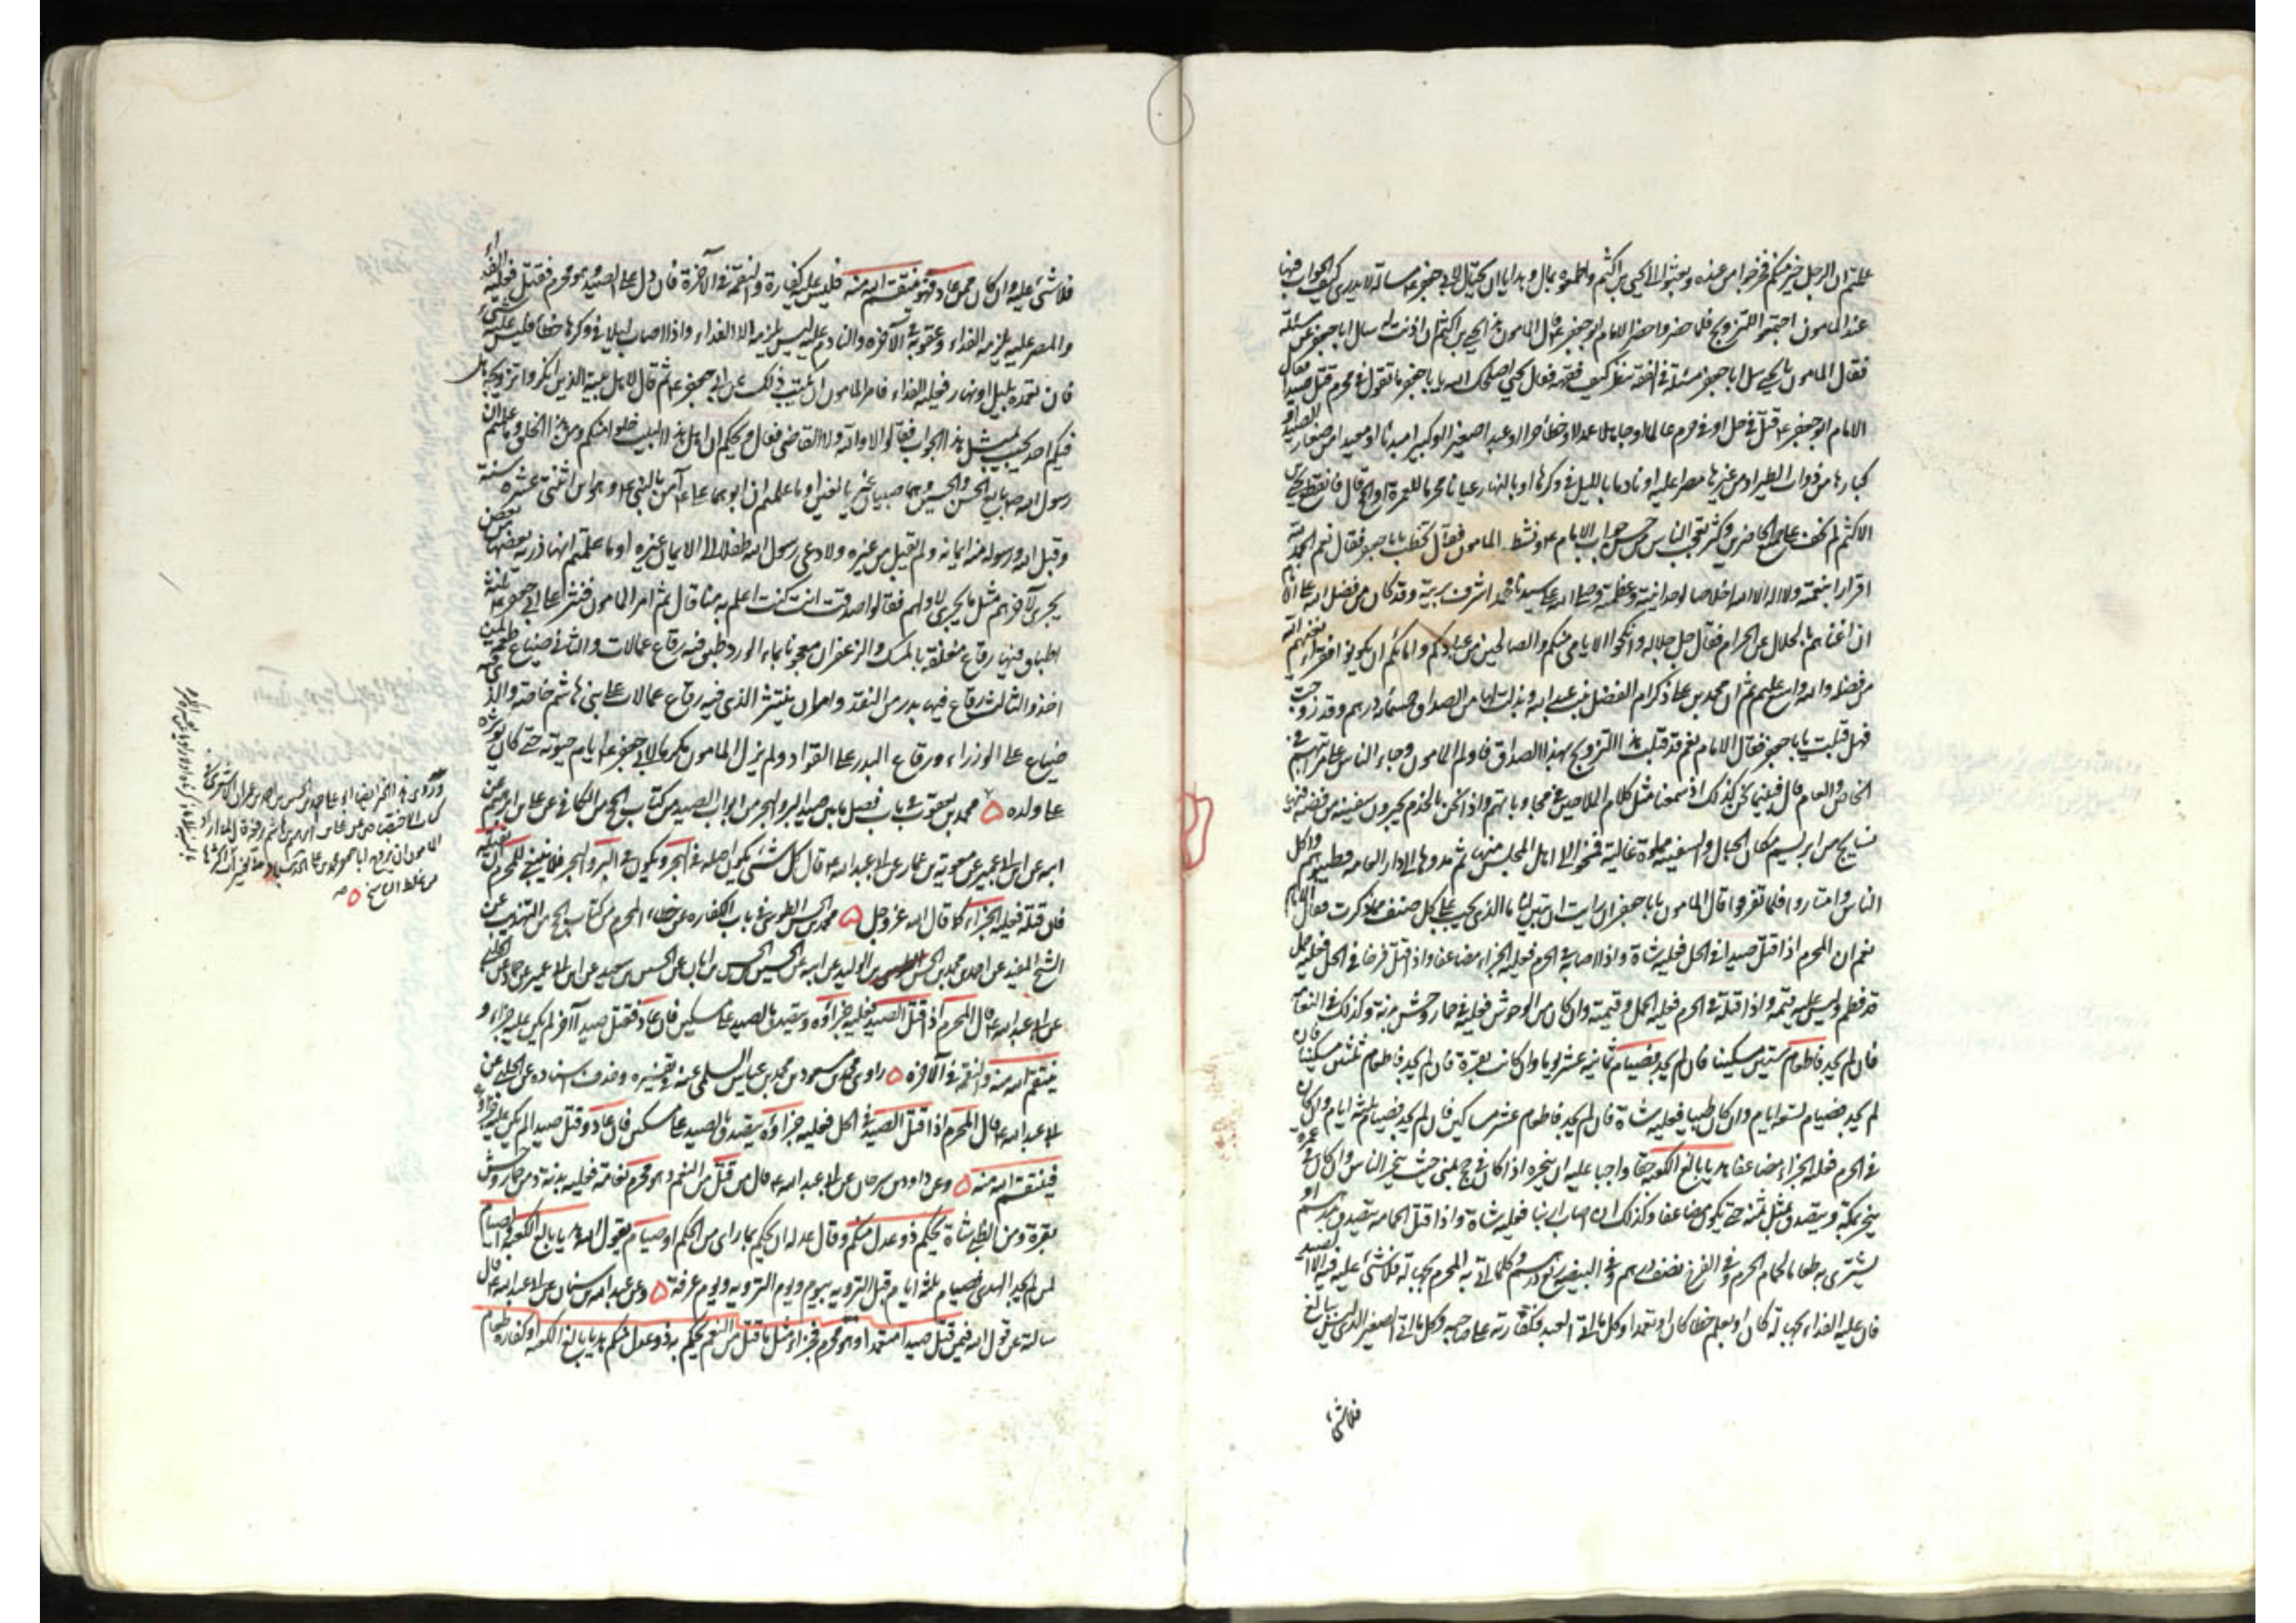 علمتم ان الرجل خير منكم فخرجوا من عنده وبعثوا الى يحيى بن اكثم واطمعوه بمال وهدايا ان يحتال لابي جعفر ع مسالة لا يدرى كيف الجواب فيها
عند المامون اذا اجتمعوا للتزويج فلما حضروا حضر الامام ابو جعفر ع قال المامون هذا يحيى بن اكثم ان اذنت له سال ابا جعفر عن مسئلة
فقال المامون يا يحيى سل ابا جعفر مسئلة فى الفقه ننظر كيف فقهه فقال يحيى اصلحك الله يا با جعفر ما تقول فى محرم قتل صيدا فقال
الامام ابو جعفر ع قتله فى حل او فى حرم عالما او جاهلا عمدا او خطأ حرا او عبدا صغيرا او كبيرا مبدئا او معيدا من صغار الصيد او
كبارها من ذوات الطير او من غيرها مصرا عليه او نادما بالليل فى وكرها او بالنهار عيانا محرما للعمرة او الحج قال فانقطع يحيى
الاكثم لم يخف على الحاضرين وكثر تعجب الناس من حسن جواب الامام ع ونشط المامون فقال تخطب يا با جعفر فقال نعم الحمد لله
اقرارا بنعمته ولا اله الا الله اخلاصا لوحدانيته وعظمته وصلى الله على سيدنا محمد اشرف بريته وقد كان من فضل الله على الانام
ان اغناهم بالحلال عن الحرام فقال جل جلاله وانكحوا الايامى منكم والصالحين من عبادكم وامائكم ان يكونوا فقراء يغنهم الله
من فضله والله واسع عليم ثم ان محمد بن على ذكر ام الفضل بنت عبد الله وبذلت لها من الصداق خمسمائة درهم وقد زوجت
فهل قبلت يا با جعفر فقال الامام نعم قد قبلت هذا التزويج بهذا الصداق فاولم المامون وجاء الناس على مراتبهم فى
الخاص والعام قال فبينما نحن كذلك اذ سمعنا مثل كلام الملاحين فى مجاوباتهم واذا نحن بالخدم يجرون سفينة من فضة فيها
نسايج من ابريسم مكان الحبال والسفينة مملوة غالية فخرج الى اهل المجلس منها ثم مدوها الى دار العامة وطيبوهم واكل
الناس وامتاروا فلما تفرقوا قال المامون يا با جعفر ان رايت ان تبين لنا ما الذى يجب على كل صنف مما ذكرت فقال الامام
نعم ان المحرم اذا قتل صيدا فى الحل فعليه شاة واذا اصابه فى الحرم فعليه الجزاء مضاعفا واذا قتل فرخا فى الحل فعليه حمل
قد فطم وليس عليه قيمة واذا قتله فى الحرم فعليه الحمل وقيمته وان كان من الوحوش فعليه فى حمار وحش بدنة وكذلك فى النعامة
فان لم يجد فاطعام ستين مسكينا فان لم يجد فصيام ثمانية عشر يوما وان كانت بقرة فان لم يجد فاطعام ثلثين مسكينا فان
لم يجد فصيام تسعة ايام وان كان ظبيا فعليه شاة فان لم يجد فاطعام عشر مساكين فان لم يجد فصيام ثلثة ايام وان كان
فى الحرم فعليه الجزاء مضاعفا هديا بالغ الكعبة حقا واجبا عليه ان ينحره اذا كان فى حج بمنى حيث ينحر الناس وان كان فى عمرة
ينحر بمكة ويتصدق بمثل ثمنه حتى يكون مضاعفا وكذلك ان اصاب ارنبا فعليه شاة واذا قتل الحمامة يتصدق بدرهم او
يشترى به طعاما لحمام الحرم وفى الفرخ نصف درهم وفى البيضة ربع درهم وكلما اتى به المحرم بجهالة فلا شئ عليه فيه الا الصيد
فان عليه الفداء بجهالة كان او بعلم خطا كان او تعمدا وكل ما اتى العبد فكفارته على صاحبه وكل ما اتى الصغير الذى ليس ببالغ
فلا شئ
فلا شئ عليه وان كان ممن عاد فهو فينتقم الله منه فليس عليه كفارة والنقمة فى الآخرة فان دل على الصيد وهو محرم فقتل فعليه الفداء
والمصر عليه يلزمه الفداء وعقوبة فى الآخره والنادم عليه ليس يلزمه الا الفداء واذا اصاب ليلا فى وكرها خطأ فليس عليه شئ
فان تعمده بليل او نهار فعليه الفداء فامر المامون ان يكتب ذلك عن ابي جعفر ع ثم قال لاهل بيته الذين انكروا تزويجه هل
فيكم احد يجيب بمثل هذا الجواب فقالوا لا والله ولا القاضى فقال ويحكم ان اهل هذا البيت خلوا منكم ومن هذا الخلق وما علمتم ان
رسول الله ص بايع الحسن والحسين وهما صبيان غير بالغين او ما علمتم ان ابوهما عليا ع آمن بالنبى ع وهو ابن اثنتى عشره سنة
وقبل الله ورسوله منه ايمانه ولم يقبل من غيره ولا دعى رسول الله طفلا الى الايمان غيره او ما علمتم انها ذرية بعضها من بعض
يجرى لآخرهم مثل ما يجرى لاولهم فقالوا صدقت انت كنت اعلم به منا قال ثم امر المامون فنثر على ابي جعفر ع ثلثة
اطباق فيها رقاع معلقة بالمسك والزعفران معجونا بماء الورد طبق فيه رقاع عمالات والثانى ضياع طعمة لمن
اخذ والثالث رقاع فيها بدر من النقد وامر ان ينتثر الذى فيه رقاع عمالات على بنى هاشم خاصة والذى
ضياع على الوزراء ورقاع البدر على القواد ولم يزل المامون مكرما لابي جعفر ع ايام حيوته حتى كان يوثره
على ولده ۵ محمد بن يعقوب فى باب فصل ما بين صيد البر والبحر من ابواب الصيد من كتاب الحج من الكافى عن على بن ابرهيم عن
ابيه عن ابن ابي عمير عن معوية بن عمار عن ابي عبد الله ع قال كل شئ يكون اصله فى البحر ويكون فى البر والبحر فلا ينبغى للمحرم ان يقتله
فان قتله فعليه الجزاء كما قال الله عز وجل ۵ محمد بن الحسن الطوسى فى باب الكفاره عن خطاء المحرم من كتاب الحج من التهذيب عن
الشيخ المفيد عن احمد بن محمد بن الحسن بن الوليد عن ابيه عن الحسين بن الحسن بن ابان عن الحسين بن سعيد عن ابن ابي عمير عن حماد عن الحلبى
عن ابي عبد الله ع قال المحرم اذا قتل الصيد فعليه جزاؤه ويتصدق بالصيد على مسكين فان عاد فقتل صيدا آخر لم يكن عليه جزاء و
ينتقم الله منه والنقمة فى الآخرة ۵
لابي عبد الله ع قال المحرم اذا قتل الصيد فى الحل فعليه جزاؤه يتصدق بالصيد على مسكين فان عاد وقتل صيدا لم يكن عليه جزاؤه
فينتقم الله منه ۵ وعن داود بن سرحان عن ابي عبد الله ع قال من قتل من النعم وهو محرم نعامة فعليه بدنة ومن حمار وحش
بقرة ومن الظبى شاة يحكم به ذوا عدل منكم وقال عدله ان يحكم بما راى من الحكم او صيام يقول الله هديا بالغ الكعبة والصيام
لمن لم يجد الهدى فصيام ثلثة ايام قبل التروية بيوم ويوم التروية ويوم عرفة ۵ وعن عبد الله بن سنان عن ابي عبد الله ع قال
سالته عن قول الله فيمن قتل صيدا متعمدا وهو محرم فجزاء مثل ما قتل من النعم يحكم به ذوا عدل منكم هديا بالغ الكعبة او كفاره طعام
من غلط الناسخ ۵ منه